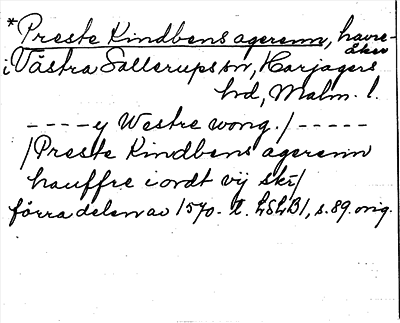 *Preste Kindbens agerenn, havre-
åker
i Västra Sallerups sn, Harjagers
hd, Malm. l.
- - - - y Westre wong. / - - - - -
/ Preste Kindbens agerenn
hauffre i ordt vij skr /
förra delen av 1570-t. LSLB1, s. 89. orig.